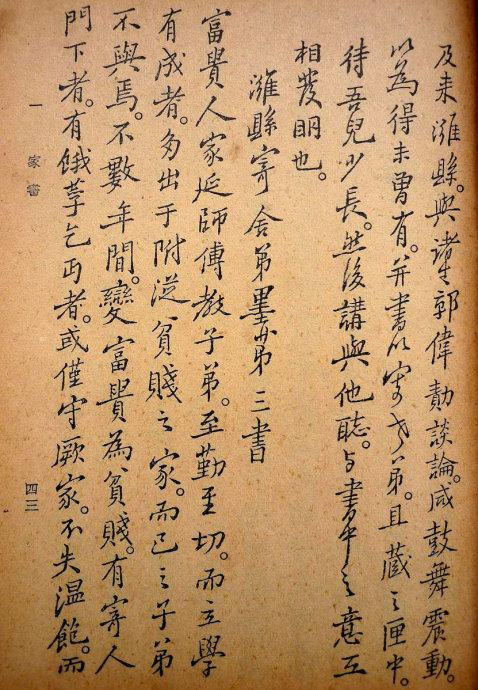 及来濰縣。與諸生郭偉勣談論。咸鼓舞震動。
以為得未曾有。并書以寄老弟。且藏之匣中。
待吾兒少長。然後講與他聽。与書中之意互
相發明也。
濰縣寄舍弟墨第三書
富貴人家延師傅教子弟。至勤至切。而立學
有成者。多出于附從貧賤之家。而已之子弟
不與焉。不數年間。變富貴為貧賤。有寄人
門下者。有餓莩乞丐者。或僅守厥家。不失温飽。而
一 家書 四三